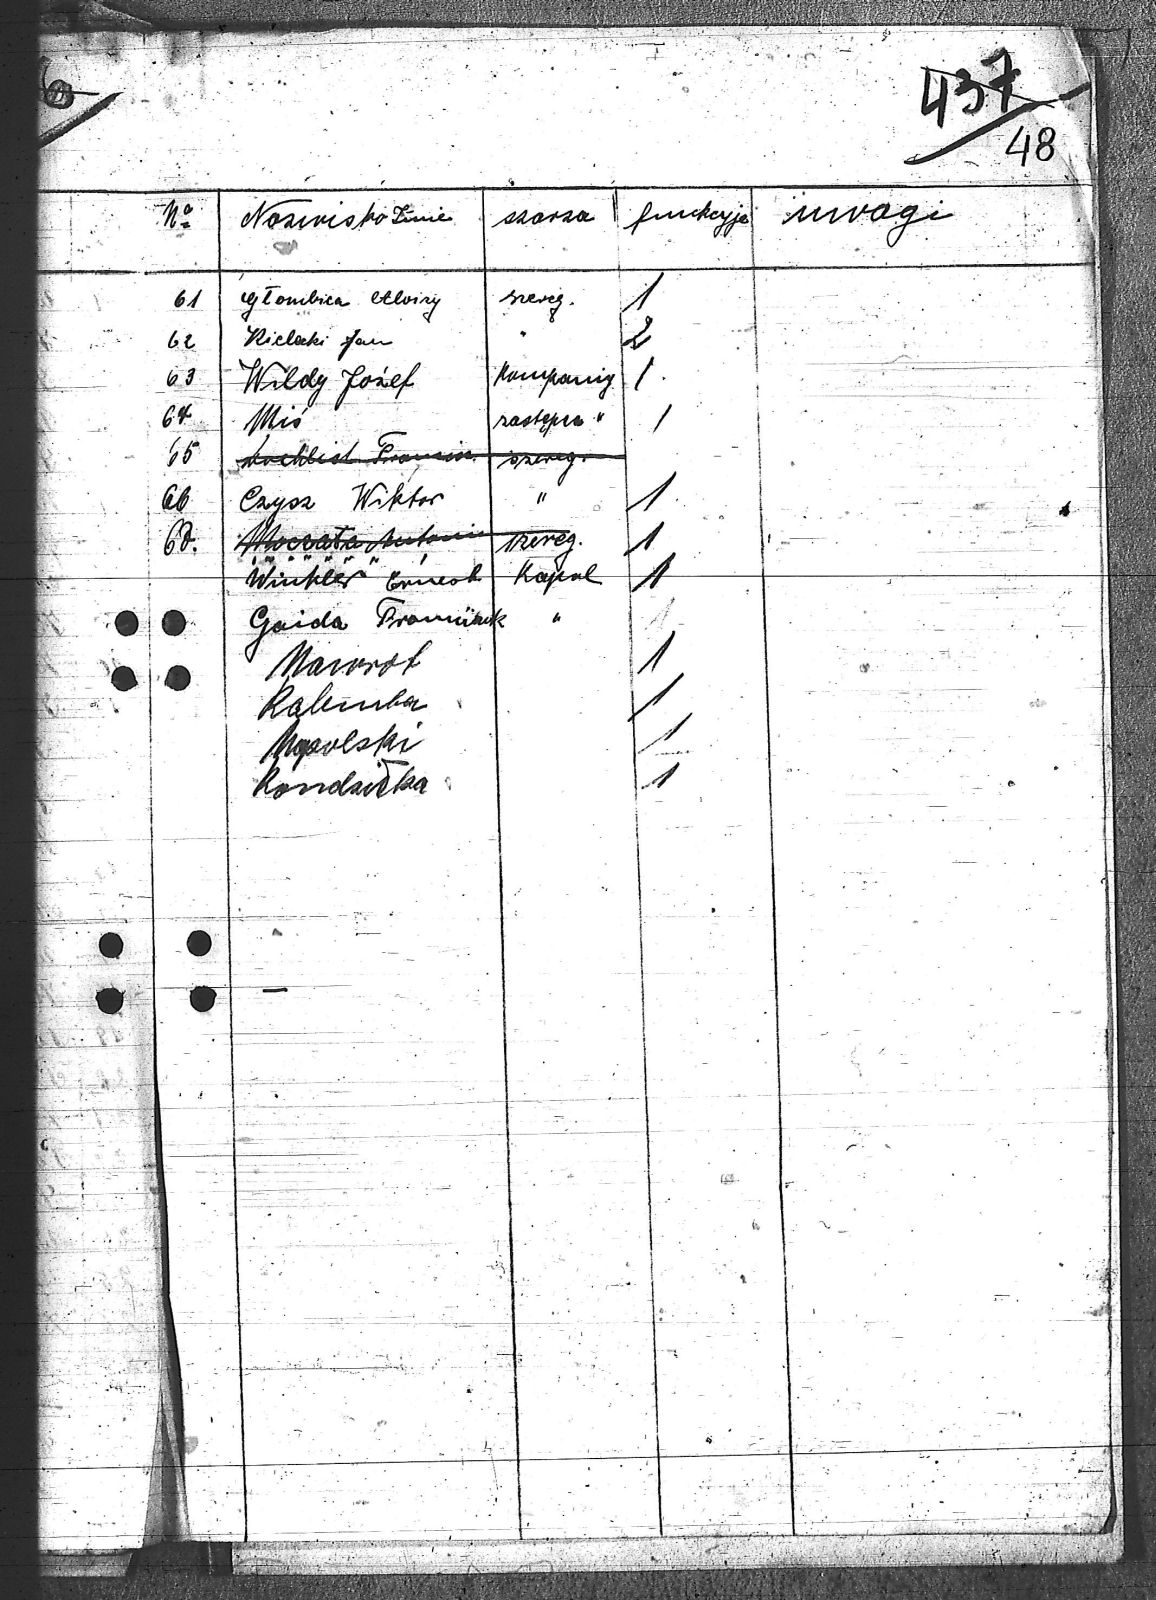 437
48
No Nazwisko Imie szarza funkcyja uwagi
61 Głombica Aloizy szereg. 1
62 Kielecki Jan " 2
63 Wildy Jożef Kompanig 1
64 Miś zastępca " 1
65 szereg.
66 Czysz Wiktor " 1
67. Moczała Antoni szereg. 1
Winkler Ernest Kapral 1
Gaida Franciszek "
Nawrot 1
Kalemba 1
Mopolski 1
Kondziełka 1